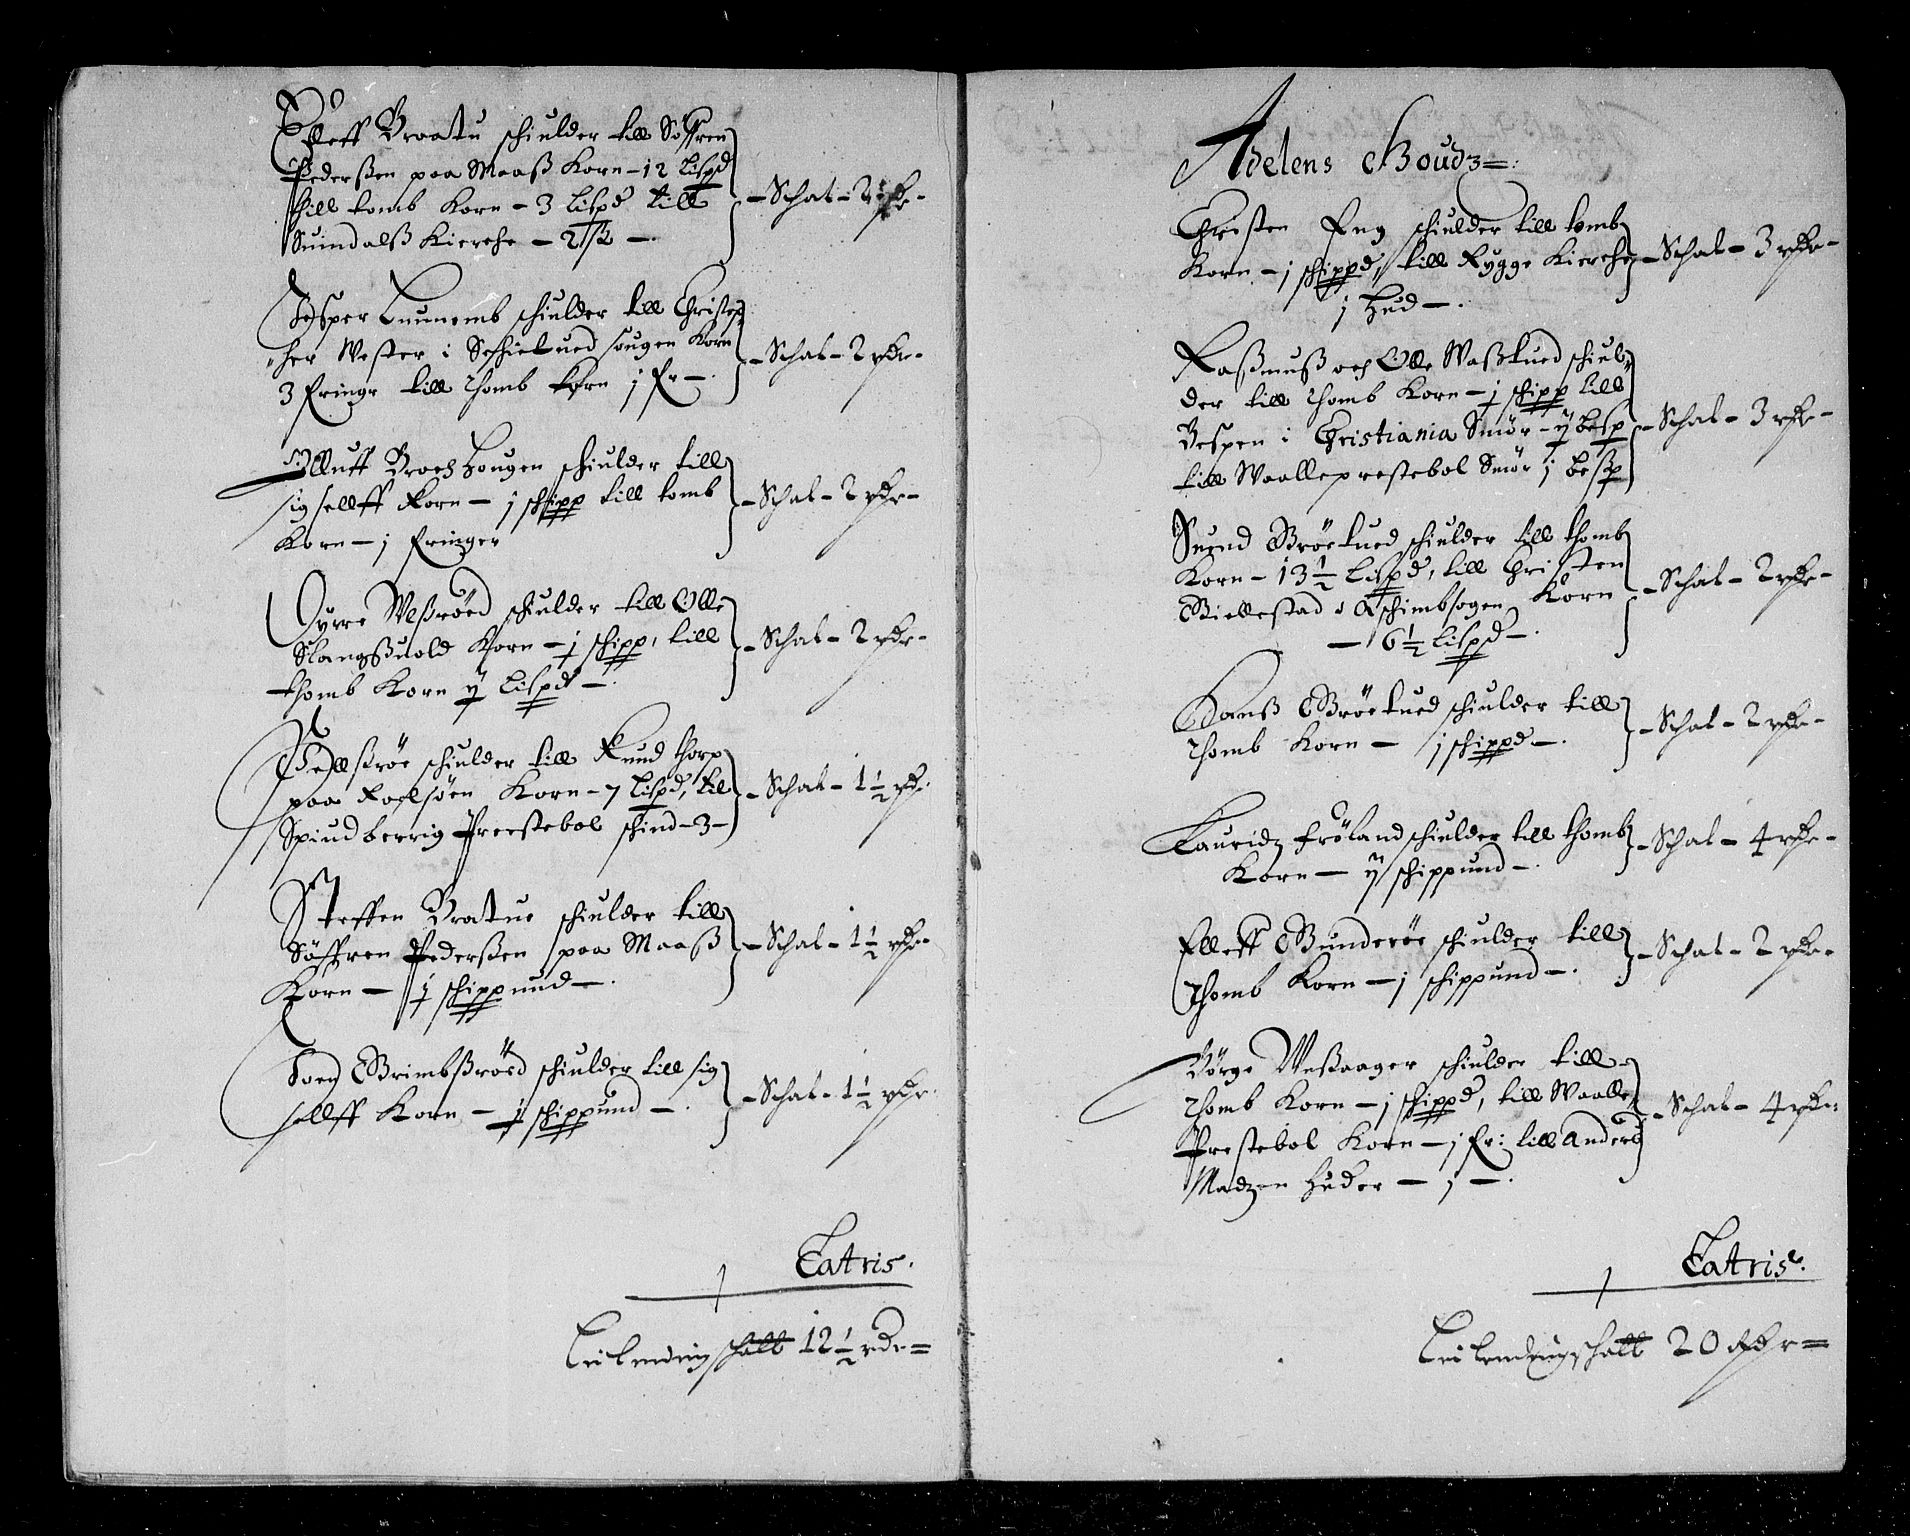 Elleff Braatu schiulder till Söffren
Pederßen paa Maaß Korn - 12 Lispd
till tomb Korn - 3 Lispd till
Suindalß Kierche - 2 ß -.
- Schat - 2 rdr -
Jesper Luunemb schiulder till Christop
her Wester i Schietued sougen Korn
3 Fringr till thomb Korn j Fr -.
- Schat - 2 rdr -
Olluff Brochhougen schiulder till
sig sellff Korn - j schipp till tomb
Korn - j Fringer
- Schat - 2 rdr -
Gyrre Weßröed schiulder till Olle
Slangßuold Korn - j schipp, till
thomb Korn ij Lispd -.
- Schat - 2 rdr -
Pellßröe schiulder till Knud thorp
paa Roelsöen Korn - 7 Lispd, til
Spiudberrig Preestebol schind - 3 -
- Schat - 1½ rdr.
Steffen Bratue schiulder till
Söffren Pederßen paa Maaß
Korn - j schippund -.
- Schat - 1½ rdr -
Soen Grimbßröed schiulder till sig
sellff Korn - j schippund -.
- Schat - 1½ rdr.
Latris.
Leilending schatt 12½ rdr =
Adelens Goudz =:
Christen Eng schiulder till tomb
Korn - j schippd, till Rygge Kierche
j Hud -.
- Schat - 3 rdr -
Raßmuß och Olle Waßtued schiul
der till thomb Korn - j schipp till
Bespen i Christiania Smör - ij besp
till Waalleprestebol Smör j beßp
- Schat - 3 rdr -
Suend Bröetued schiulder till thomb
Korn - 13½ Lispd, till Christen
Biellestad i schimbsogen Korn
- 6½ Lispd -.
- Schat - 2 rdr -
Hanß Bröetued schiulder till
thomb Korn - j schippd -.
- Schat - 2 rdr -
Lauridz fröland schiulder till thomb
Korn - ij schippund -.
- Schat - 4 rdr -
Elleff Bunderöe schiulder till
thomb Korn - j schippund -.
- Schat - 2 rdr -
Börge Weßaager schiulder till
thomb Korn - j schippd, till Waalle
Prestebol Korn - j Fr: till Anderß
Madzen Huder - j -.
- Schat - 4 rdr -
Latris.
Leilendingschatt 20 Rdr =